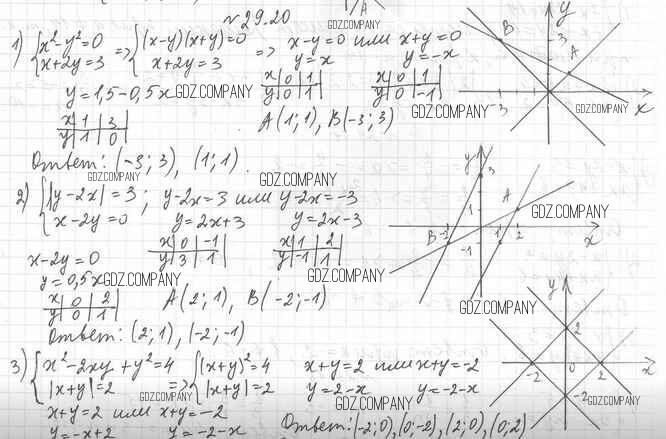 № 29.20
GDZ.COMPANY
1) {x²-y²=0 => {(x-y)(x+y)=0 => x-y=0 или x+y=0
x+2y=3 x+2y=3 y=x y=-x
y=1,5-0,5x GDZ.COMPANY x|0|1 x|0|1
y|0|1 y|0|-1
GDZ.COMPANY
x|1|3 A(1;1), B(-3;3)
y|1|0
Ответ: (-3;3), (1;1).
GDZ.COMPANY
B y 3 A -3 x
GDZ.COMPANY
2) {|y-2x|=3; y-2x=3 или y-2x=-3
x-2y=0 y=2x+3 y=2x-3
GDZ.COMPANY
x-2y=0 x|0|-1 x|1|2
y|3|1 y|-1|1
y=0,5x GDZ.COMPANY
GDZ.COMPANY
x|0|2 A(2;1), B(-2;-1)
y|0|1
Ответ: (2;1), (-2;-1)
y 3 A 1 B -2 1 2 -1 x
GDZ.COMPANY
GDZ.COMPANY
3) {x²-2xy+y²=4 => {(x+y)²=4 x+y=2 или x+y=-2
|x+y|=2 |x+y|=2 y=2-x y=-2-x
GDZ.COMPANY
x+y=2 или x+y=-2
GDZ.COMPANY
y=-x+2 y=-2-x Ответ: (-2;0), (0;-2), (2;0), (0;2)
y 2 -2 0 2 x -2
GDZ.COMPANY